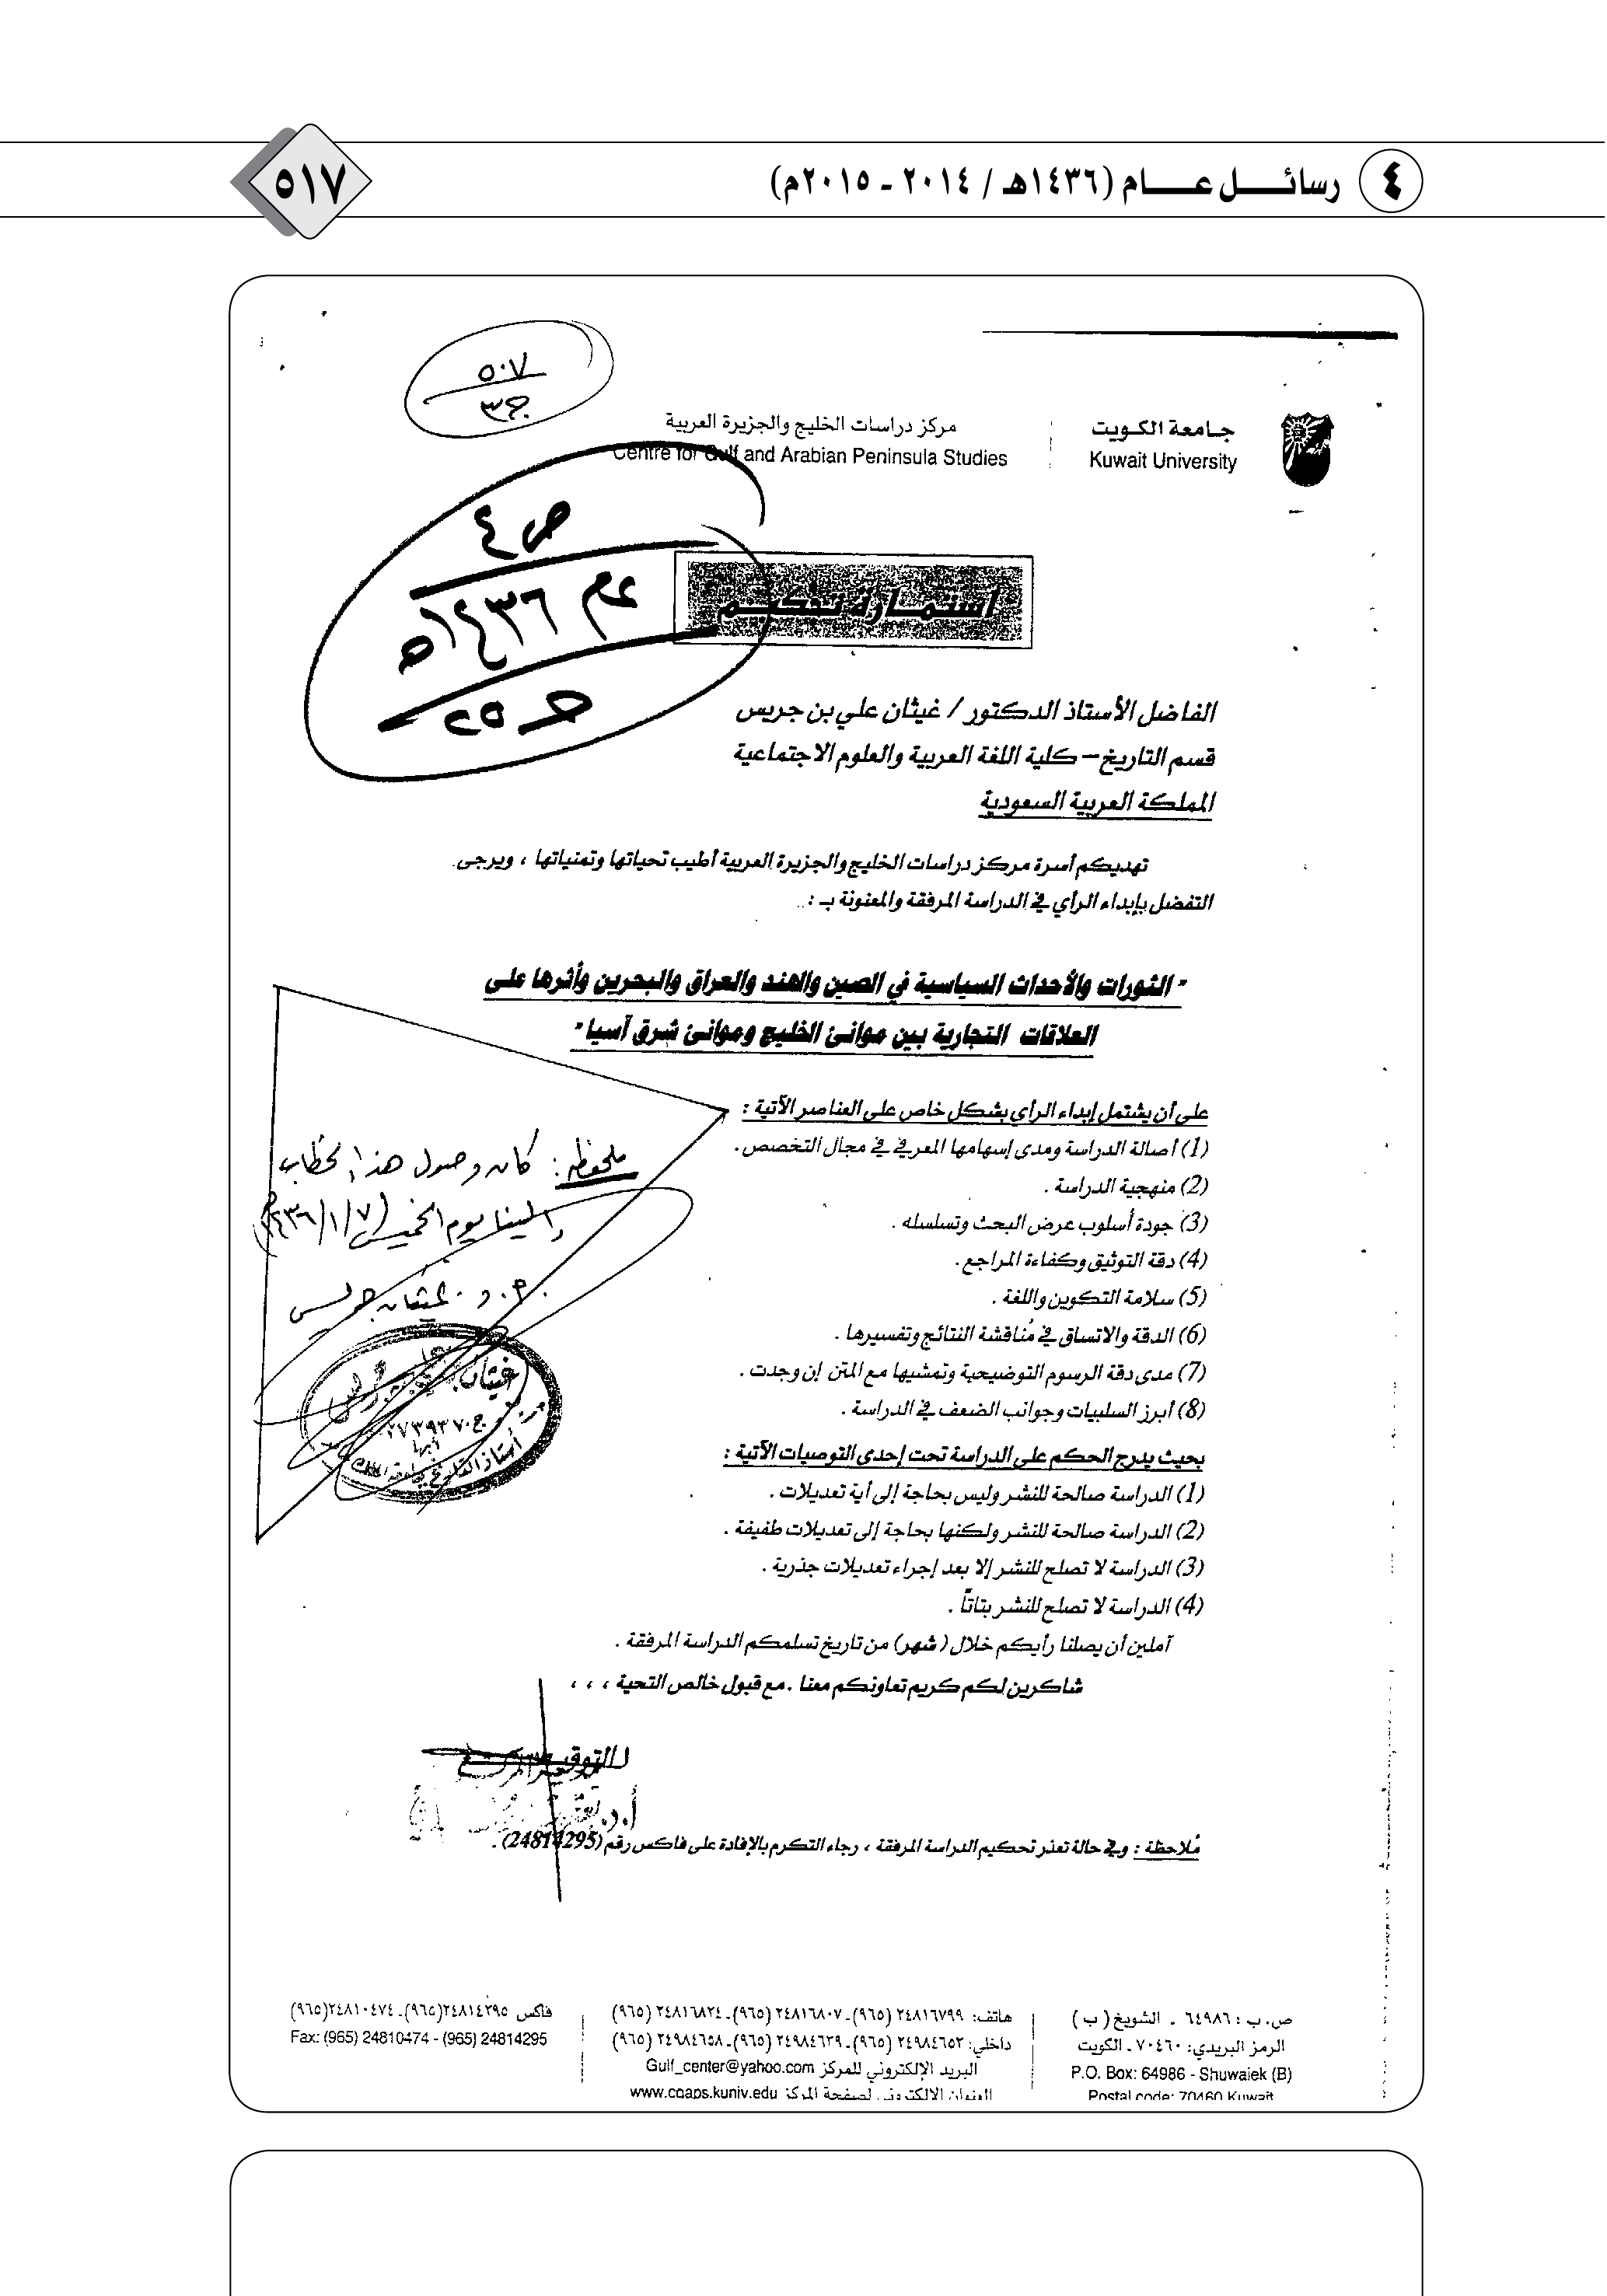 ٤ رسائــل عــــام (١٤٣٦هـ / ٢٠١٤ ـ ٢٠١٥م)
٥١٧
٥٠٧
ج٣
جامعة الكويت
Kuwait University
مركز دراسات الخليج والجزيرة العربية
Centre for Gulf and Arabian Peninsula Studies
ص ٤
عام ١٤٣٦ه
ج ٢٥
استمارة تحكيم
الفاضل الأستاذ الدكتور / غيثان علي بن جريس
قسم التاريخ – كلية اللغة العربية والعلوم الاجتماعية
المملكة العربية السعودية
تهديكم أسرة مركز دراسات الخليج والجزيرة العربية أطيب تحياتها وتمنياتها ، ويرجى
التفضل بإبداء الرأي في الدراسة المرفقة والمعنونة بـ :
" الثورات والأحداث السياسية في الصين والهند والعراق والبحرين وأثرها على
العلاقات التجارية بين موانئ الخليج وموانئ شرق آسيا "
على أن يشتمل إبداء الرأي بشكل خاص على العناصر الآتية :
(1) أصالة الدراسة ومدى إسهامها المعرفي في مجال التخصص .
(2) منهجية الدراسة .
(3) جودة أسلوب عرض البحث وتسلسله .
(4) دقة التوثيق وكفاءة المراجع .
(5) سلامة التكوين واللغة .
(6) الدقة والاتساق في مُناقشة النتائج وتفسيرها .
(7) مدى دقة الرسوم التوضيحية وتمشيها مع المتن إن وجدت .
(8) أبرز السلبيات وجوانب الضعف في الدراسة .
ملحوظة : كان وصول هذا الخطاب
إلينا يوم الخميس (١٤٣٦/١/٧ه)
أ . د . غيثان جريس
غيثان بن علي بن جريس
٢٧٣٩٣٧٠
أبها
أستاذ التاريخ بجامعة الملك
بحيث يدرج الحكم على الدراسة تحت إحدى التوصيات الآتية :
(1) الدراسة صالحة للنشر وليس بحاجة إلى أية تعديلات .
(2) الدراسة صالحة للنشر ولكنها بحاجة إلى تعديلات طفيفة .
(3) الدراسة لا تصلح للنشر إلا بعد إجراء تعديلات جذرية .
(4) الدراسة لا تصلح للنشر بتاتاً .
آملين أن يصلنا رأيكم خلال ( شهر) من تاريخ تسلمكم الدراسة المرفقة .
شاكرين لكم كريم تعاونكم معنا . مع قبول خالص التحية ، ، ،
أ.د.
مُلاحظة : وفي حالة تعذر تحكيم الدراسة المرفقة ، رجاء التكرم بالإفادة على فاكس رقم (24814295) .
ص. ب : ٦٤٩٨٦ ـ الشويخ ( ب )
الرمز البريدي: ٧٠٤٦٠ ـ الكويت
P.O. Box: 64986 - Shuwaiek (B)
Postal code: 70460 Kuwait
هاتف: ٢٤٨١٦٧٩٩ (٩٦٥)ـ ٢٤٨١٦٨٠٧ (٩٦٥)ـ ٢٤٨١٦٨٢٤ (٩٦٥)
داخلي: ٢٤٩٨٤٦٥٢ (٩٦٥)ـ ٢٤٩٨٤٦٣٩ (٩٦٥)ـ ٢٤٩٨٤٦٥٨ (٩٦٥)
البريد الإلكتروني للمركز Gulf_center@yahoo.com
العنوان الالكتروني لصفحة المركز www.cgaps.kuniv.edu
فاكس ٢٤٨١٤٢٩٥(٩٦٥)ـ ٢٤٨١٠٤٧٤(٩٦٥)
Fax: (965) 24810474 - (965) 24814295